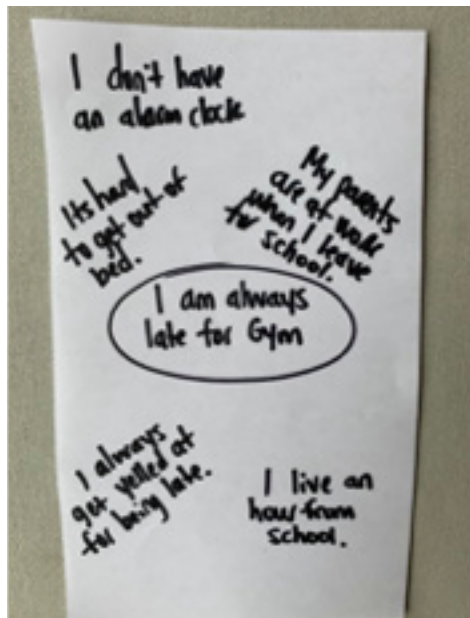 I don't have
an alarm clock
Its hard
to get out of
bed.
My parents
are at work
when I leave
for school.
I am always
late for Gym
I always
get yelled at
for being late.
I live an
hour from
school.